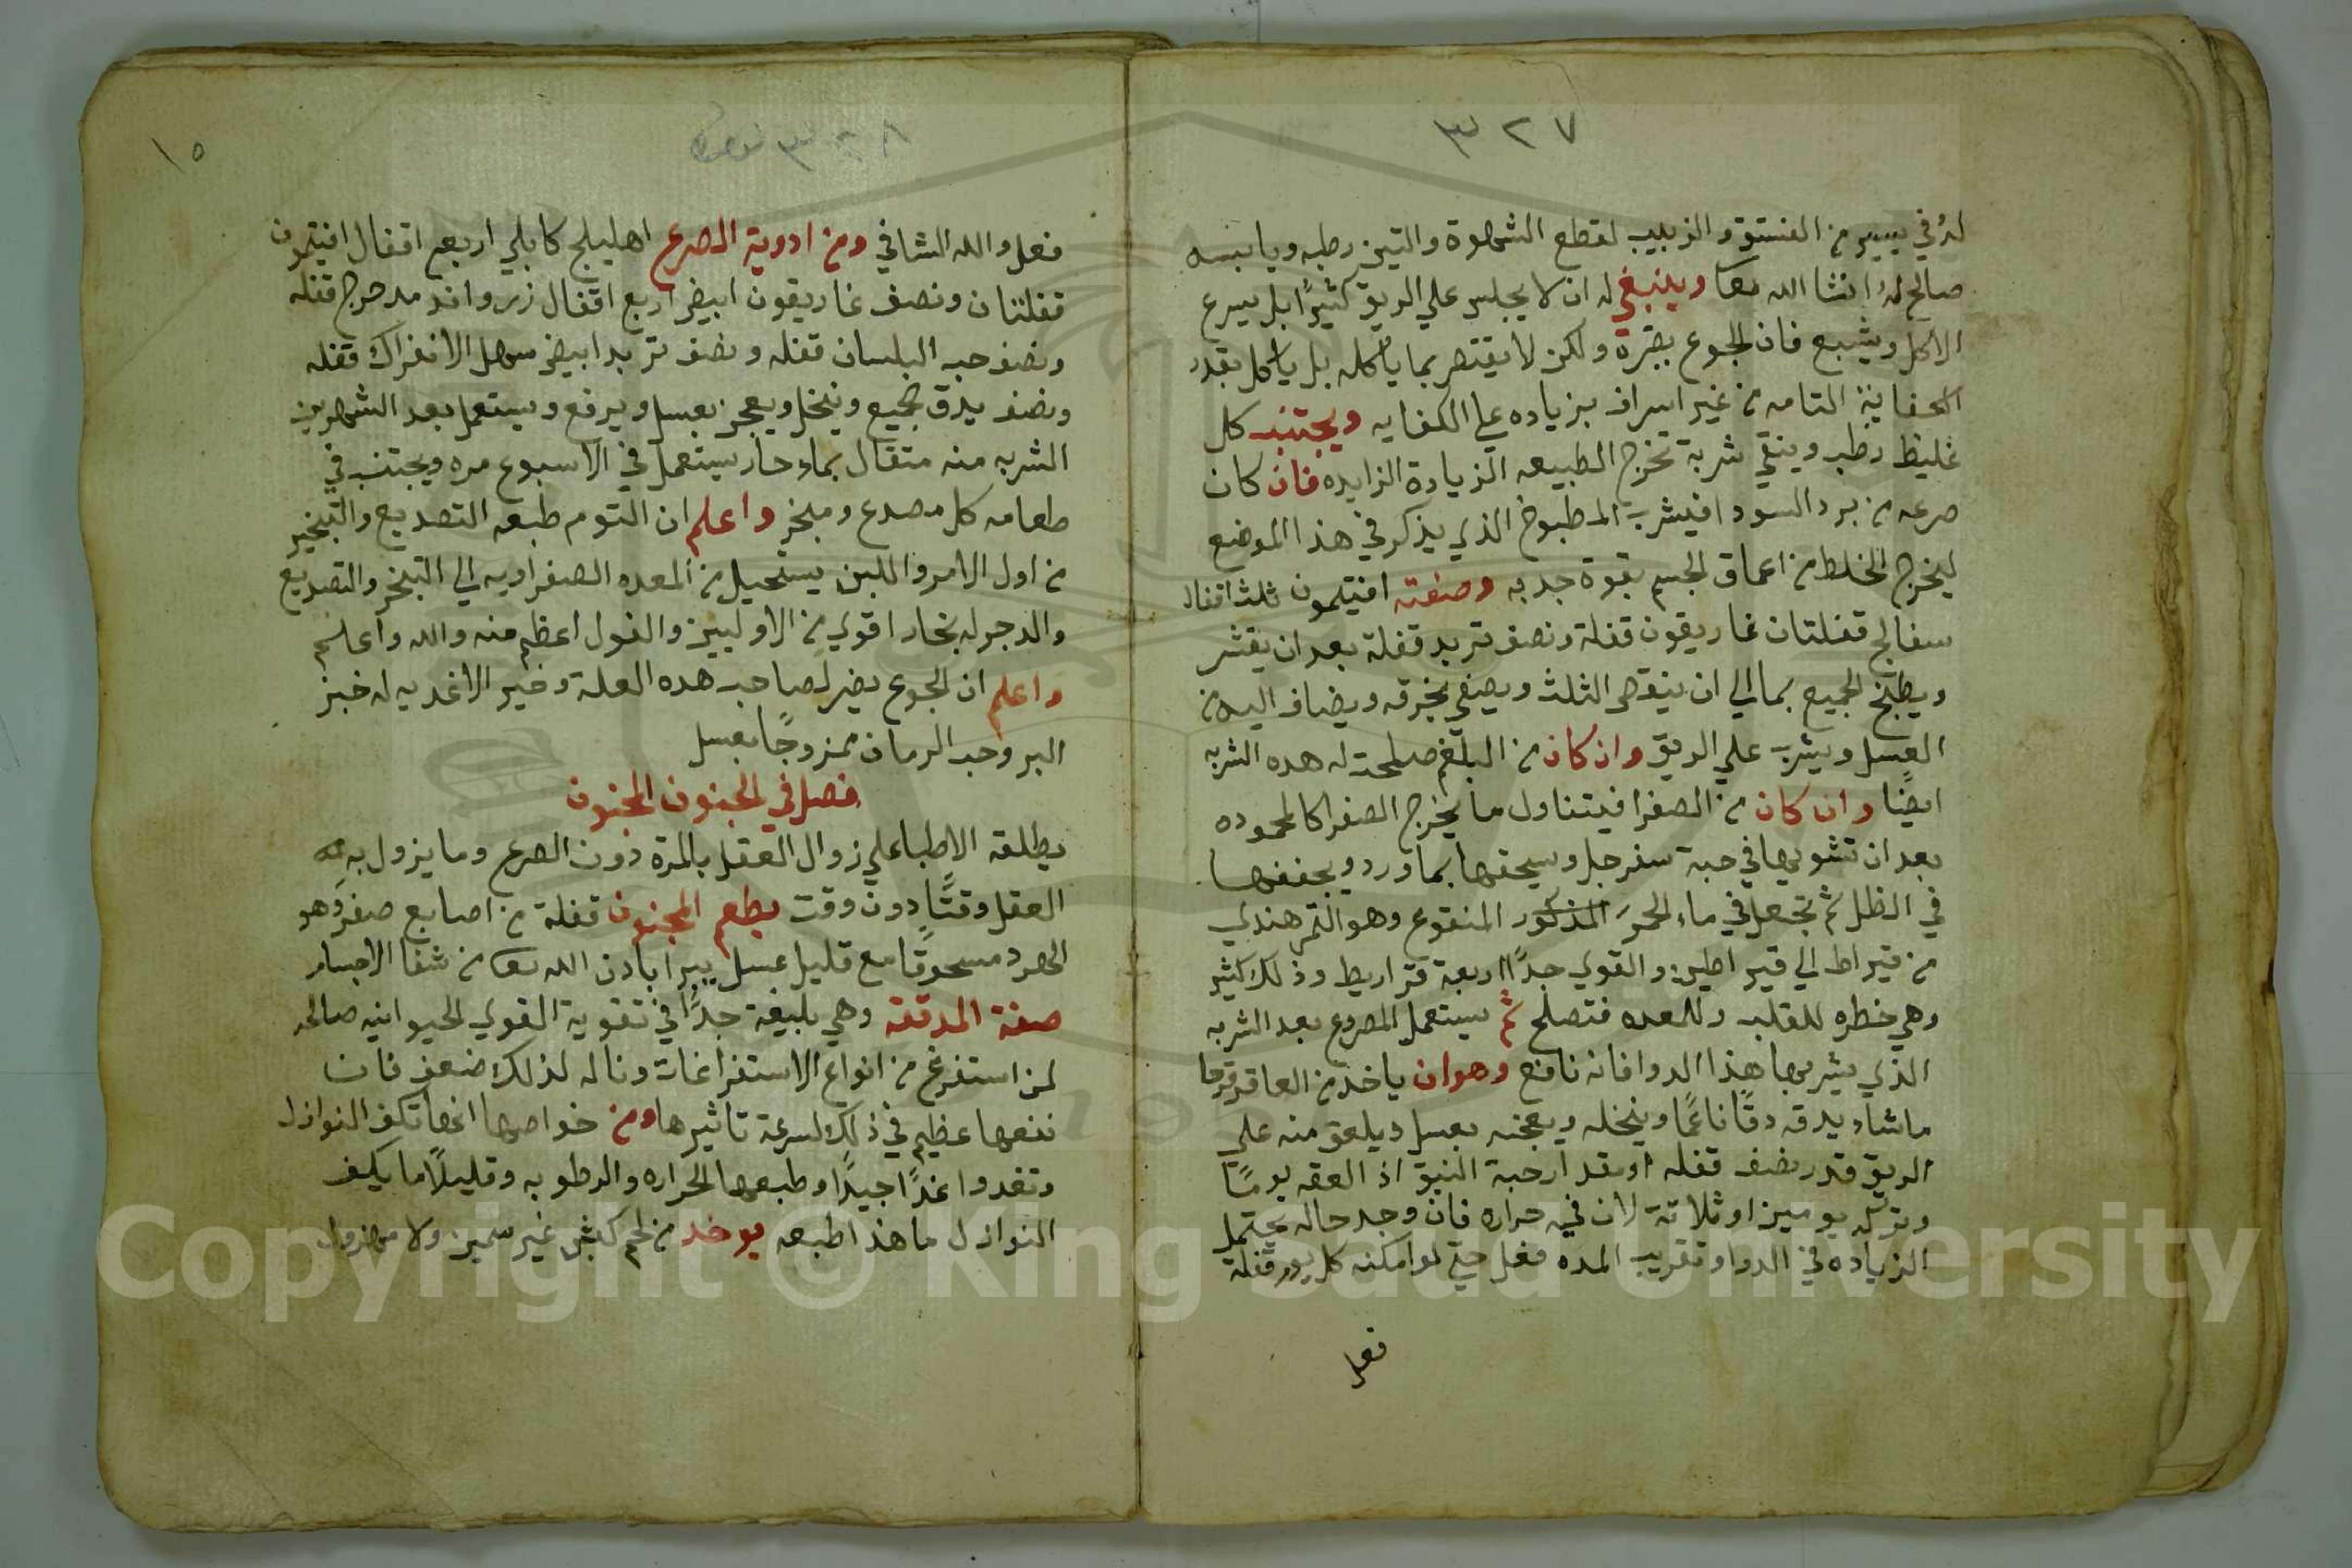 ٣٢٧
له في يسير من الفستق والزبيب لقطع الشهوة والتين رطبه ويابسه
صالح له انشا الله تعا وينبغي له ان لا يجلس علي الريق كثيرًا بل يسرع
الاكل ويشبع فان الجوع يضره ولكن لا يقتصر بما ياكله بل ياكل بقدر
الكفاية التامه من غير اسراف بزياده علي الكفايه ويجتنب كل
غليظ رطب وينقي شربة تخرج الطبيعه الزيادة الزايده فان كان
صرعه من برد السودا فيشرب المطبوخ الذي يذكر في هذا الموضع
ليخرج الخلط من اعماق الجسم بقوة جدبه وصفته افتيمون ثلث اقفال
سفالج قفلتان غاريقون قفلة ونصف تربد قفلة بعد ان يقشر
ويطبخ الجميع بما الي ان ينقص الثلث ويصفي بخرقه ويضاف اليه من
العسل ويشرب علي الريق وان كان من البلغم صلحت له هده الشربه
ايضًا وان كان من الصفرا فيتناول ما يخرج الصفرا كالمحموده
بعد ان تشويها في حبة سفرجل ويسحقها بماورد ويجففها
في الظل ثم تجعل في ماء الحمر المذكور المنقوع وهو التمر هندي
من قيراط الي قيراطين والقوي جدًا اربعة قراريط وذلك كثير
وهي خطره للقلب وللمعده فتصلح ثم يستعمل المصروع بعد الشربه
الذي يشربها هذا الدوا فانه نافع وهو ان ياخد من العاقرقرحا
ماشاء يدقه دقًا ناعمًا وينخله ويعجنه بعسل ويلعق منه علي
الريق قدر نصف قفله او مقدار حبة النبق اذ العقه يومًا
وتركه يومين او ثلاثة لان فيه حراره فان وجد حاله يحتمل
الزياده في الدوا وتقريب المده فعل حتي لو امكنه كل يوم قفلة
فعل
٣٢٨
١٥
فعل والله الشافي ومن ادوية الصرع اهليلج كابلي اربعه اقفال افتيمون
قفلتان ونصف غاريقون ابيض اربع اقفال زرواند مدحرج قفله
ونصف حب البلسان قفله ونصف تربد ابيض سهل الانفراك قفله
ونصف يدق الجميع وينخل ويعجن بعسل ويرفع ويستعمل بعد الشهرين
الشربه منه متقال بماء حار يستعمل في الاسبوع مره ويجتنب في
طعامه كل مصدع ومبخر واعلم ان التوم طبعه التصديع والتبخير
من اول الامر واللبن يستحيل من المعده الصفراويه الي التبخر والتصديع
والدجر له بخار اقوي من الاوليين والفول اعظم منه والله واعلم
واعلم ان الجوع يضر لصاحب هده العلة وخير الاغديه له خبز
البر وحب الرمان ممزوجًا بعسل
فصل في الجنون المجنون
يطلقه الاطبا علي زوال العقل بالمرة دون الصرع وما يزول به
العقل وقتًا دون وقت يطعم المجنون قفلة من اصابع صفر وهو
الهرد مسحوقًا مع قليل عسل يبرا بادن الله تعا من شفا الاجسام
صفة المدققة وهي بليغة جدًا في تقوية القوي الحيوانيه صالحه
لمن استفرغ من انواع الاستفراغات وناله لذلك ضعف فان
نفعها عظيم في ذلك لسرعة تاثيرها ومن خواصها انها تكف النوازل
وتغدوا غدًا جيدًا وطبعها الحراره والرطوبه وقليلاً ما يكف
النوازل ما هذا طبعه يوخد من لحم كبش غير سمين ولا مهزول
Copyright © King Saud University